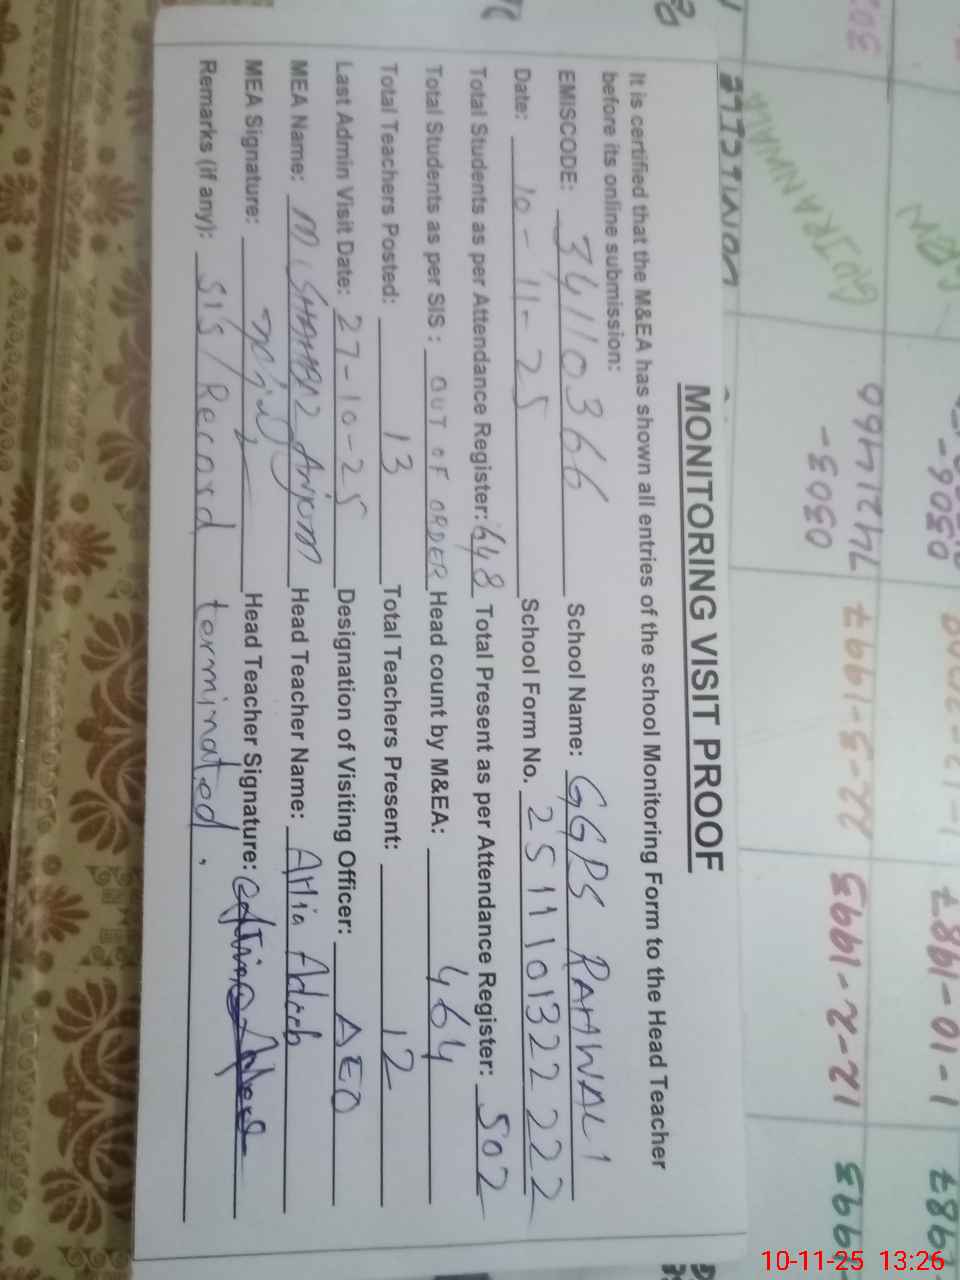 MONITORING VISIT PROOF
It is certified that the M&EA has shown all entries of the school Monitoring Form to the Head Teacher
before its online submission:
EMISCODE: 34110366 School Name: GGPS RAHWALI
Date: 10-11-25 School Form No. 2511101322222
Total Students as per Attendance Register: 648 Total Present as per Attendance Register: 502
Total Students as per SIS: OUT OF ORDER Head count by M&EA: 464
Total Teachers Posted: 13 Total Teachers Present: 12
Last Admin Visit Date: 27-10-25 Designation of Visiting Officer: AEO
MEA Name: M. Anjom Head Teacher Name:
MEA Signature: Head Teacher Signature:
Remarks (if any): SIS/Record terminated.
GUJRANWALA
0305-
7421466
22-5-1997
12-2-1995
0306-
1-10-1987
10-11-25 13:26